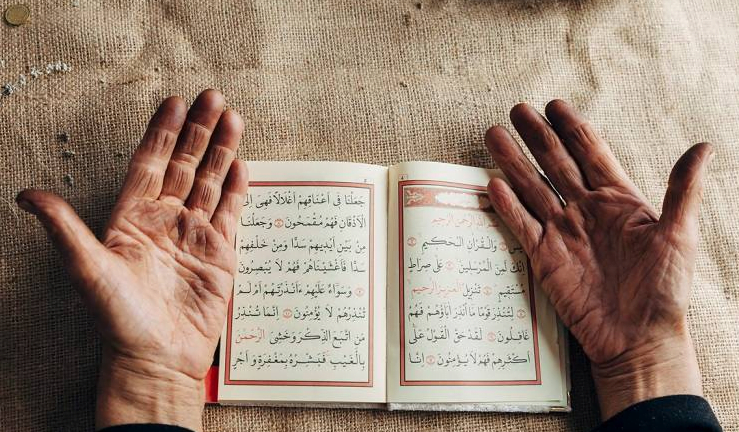 اللّٰهِ الرَّحْمٰنِ الرَّحِيمِ
يٰسٓ وَالْقُرْاٰنِ الْحَكِيمِ
اِنَّكَ لَمِنَ الْمُرْسَلِينَ عَلٰى صِرَاطٍ
مُسْتَقِيمٍ تَنْزِيلَ الْعَزِيزِ الرَّحِيمِ
لِتُنْذِرَ قَوْمًا مَا اُنْذِرَ اٰبَاؤُهُمْ فَهُمْ
غَافِلُونَ لَقَدْ حَقَّ الْقَوْلُ عَلٰى
اَكْثَرِهِمْ فَهُمْ لَا يُؤْمِنُونَ اِنَّا
جَعَلْنَا فِى اَعْنَاقِهِمْ اَغْلَالًا فَهِىَ اِلَى
الْاَذْقَانِ فَهُمْ مُقْمَحُونَ وَجَعَلْنَا
مِنْ بَيْنِ اَيْدِيهِمْ سَدًّا وَمِنْ خَلْفِهِمْ
سَدًّا فَاَغْشَيْنَاهُمْ فَهُمْ لَا يُبْصِرُونَ
وَسَوَاءٌ عَلَيْهِمْ ءَاَنْذَرْتَهُمْ اَمْ لَمْ
تُنْذِرْهُمْ لَا يُؤْمِنُونَ اِنَّمَا تُنْذِرُ
مَنِ اتَّبَعَ الذِّكْرَ وَخَشِىَ الرَّحْمٰنَ
بِالْغَيْبِ فَبَشِّرْهُ بِمَغْفِرَةٍ وَاَجْرٍ